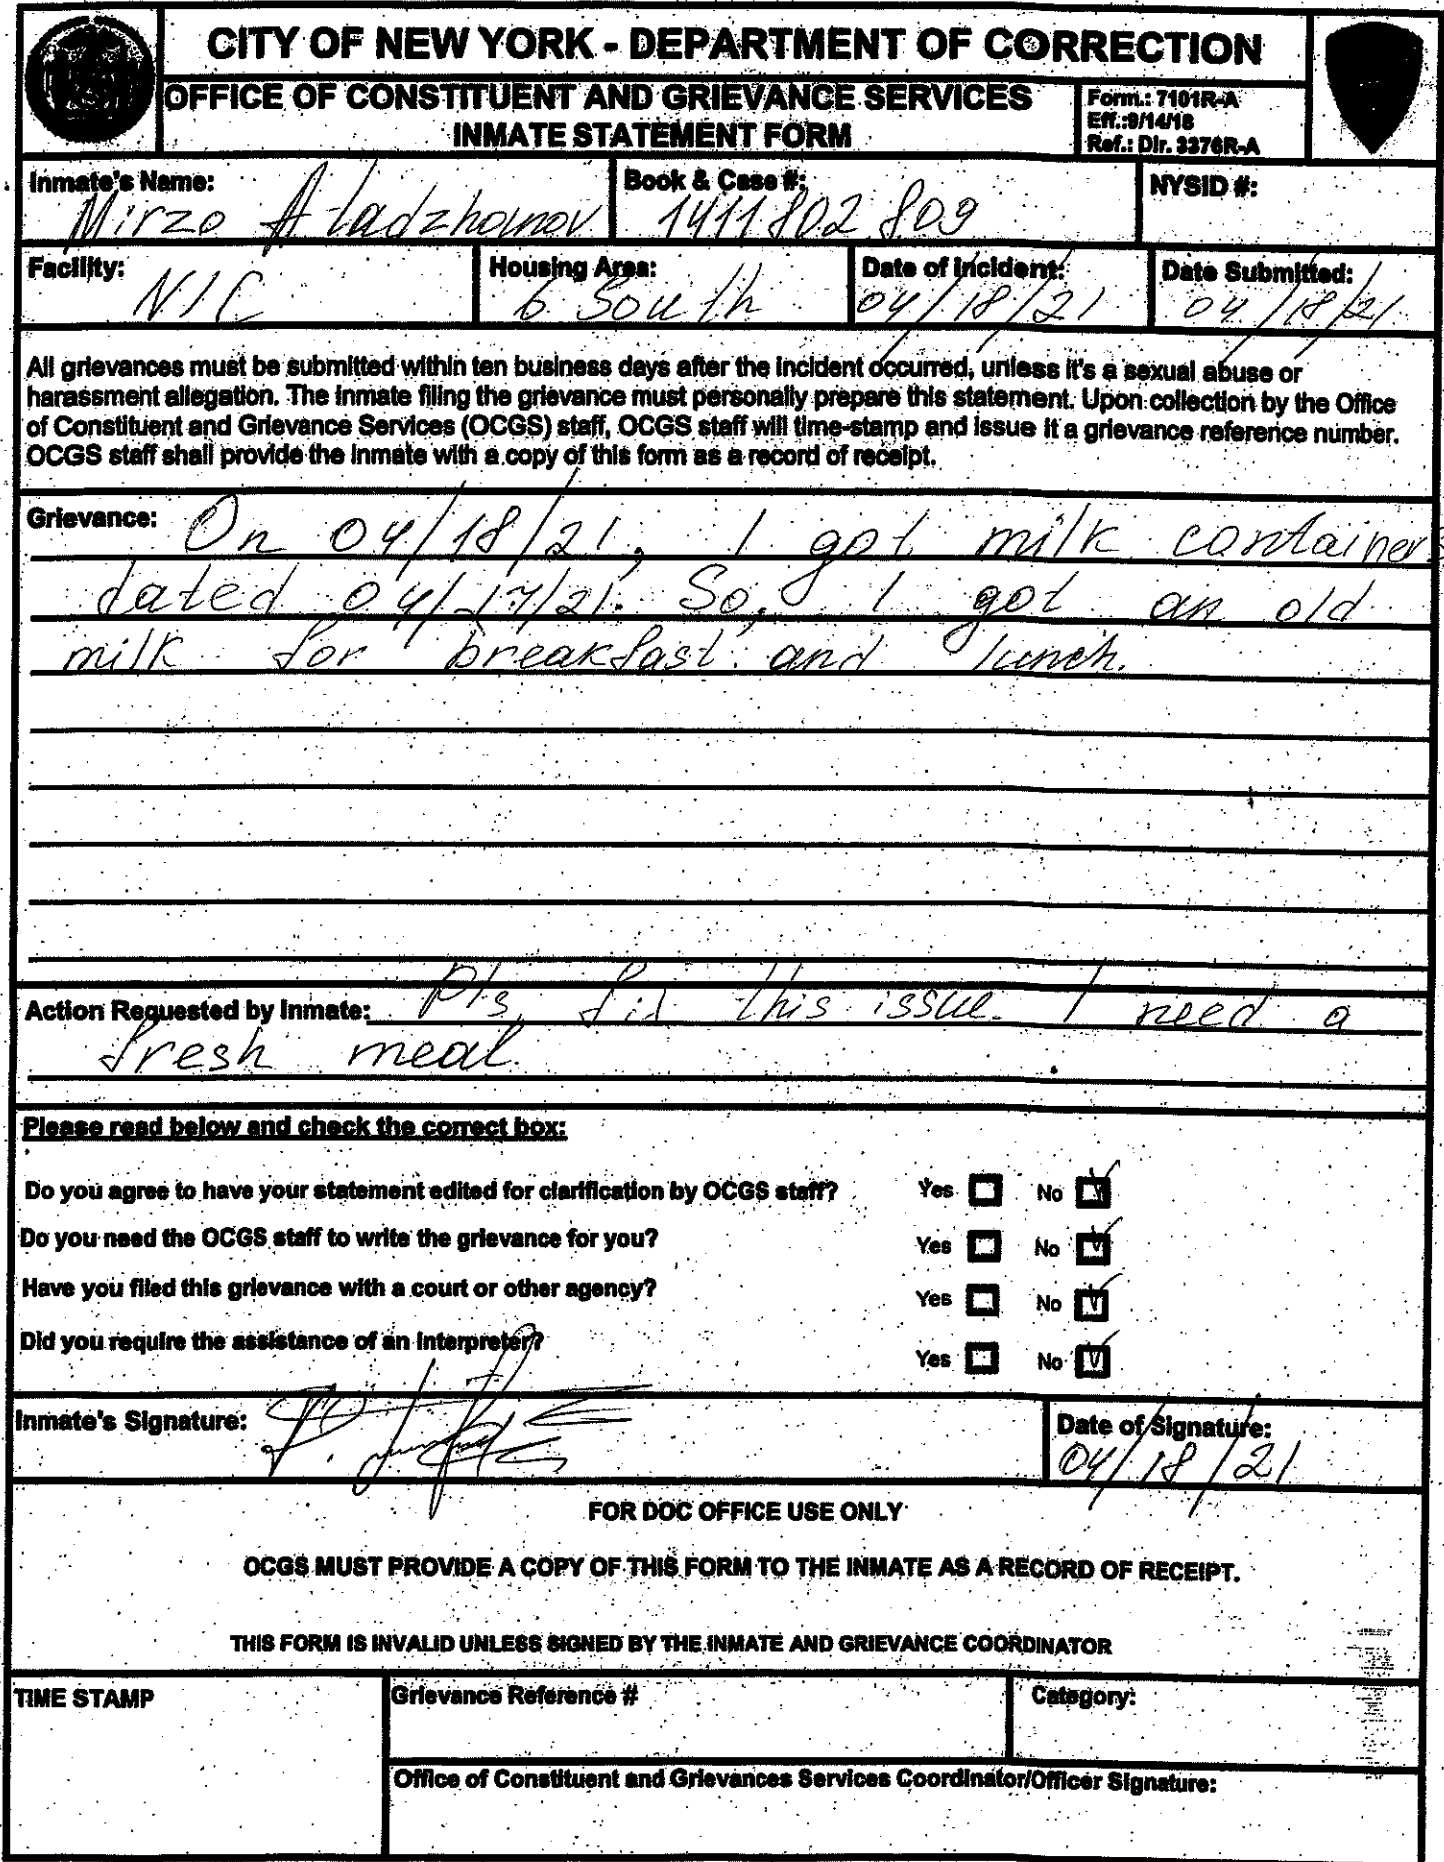 CITY OF NEW YORK - DEPARTMENT OF CORRECTION
OFFICE OF CONSTITUENT AND GRIEVANCE SERVICES
INMATE STATEMENT FORM
Form.: 7101R-A
Eff.:9/14/18
Ref.: Dir. 3376R-A
Inmate's Name: Mirzo Atadzhanov
Book & Case #: 1411802809
NYSID #:
Facility: NIC
Housing Area: 6 South
Date of Incident: 04/18/21
Date Submitted: 04/18/21
All grievances must be submitted within ten business days after the incident occurred, unless it's a sexual abuse or
harassment allegation. The inmate filing the grievance must personally prepare this statement. Upon collection by the Office
of Constituent and Grievance Services (OCGS) staff, OCGS staff will time-stamp and issue it a grievance reference number.
OCGS staff shall provide the inmate with a copy of this form as a record of receipt.
Grievance: On 04/18/21, I got milk containers
dated 04/17/21. So, I got an old
milk for breakfast and lunch.
Action Requested by Inmate: Pls, fix this issue. I need a
fresh meal.
Please read below and check the correct box:
Do you agree to have your statement edited for clarification by OCGS staff? Yes No
Do you need the OCGS staff to write the grievance for you? Yes No
Have you filed this grievance with a court or other agency? Yes No
Did you require the assistance of an interpreter? Yes No
Inmate's Signature:
Date of Signature: 04/18/21
FOR DOC OFFICE USE ONLY
OCGS MUST PROVIDE A COPY OF THIS FORM TO THE INMATE AS A RECORD OF RECEIPT.
THIS FORM IS INVALID UNLESS SIGNED BY THE INMATE AND GRIEVANCE COORDINATOR
TIME STAMP
Grievance Reference #
Category:
Office of Constituent and Grievances Services Coordinator/Officer Signature: